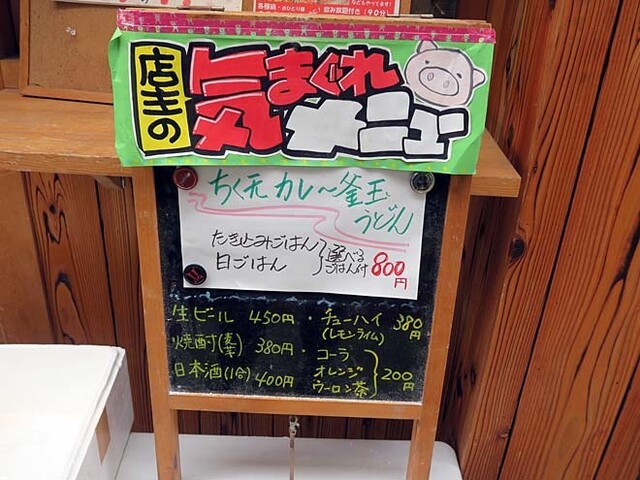 飲み放題付き(90分)
店主の
気まぐれ
メニュー
ちく天カレー釜玉
うどん
たき込みごはん
白ごはん
選べる
ごはん付
800円
生ビール 450円・チューハイ 380円
(レモンライム)
焼酎(麦 芋) 380円・コーラ
オレンジ
日本酒(1合) 400円
ウーロン茶
200円